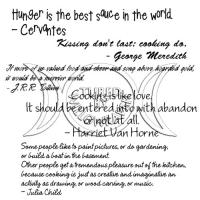 Hunger is the best sauce in the world.
- Cervantes
Kissing don't last: cooking do.
- George Meredith
If more of us valued food and cheer and song above hoarded gold,
it would be a merrier world.
- J.R.R. Tolkien
Cooking is like love.
It should be entered into with abandon
or not at all.
- Harriet Van Horne
Some people like to paint pictures, or do gardening,
or build a boat in the basement.
Other people get a tremendous pleasure out of the kitchen,
because cooking is just as creative and imaginative an
activity as drawing, or wood carving, or music.
- Julia Child